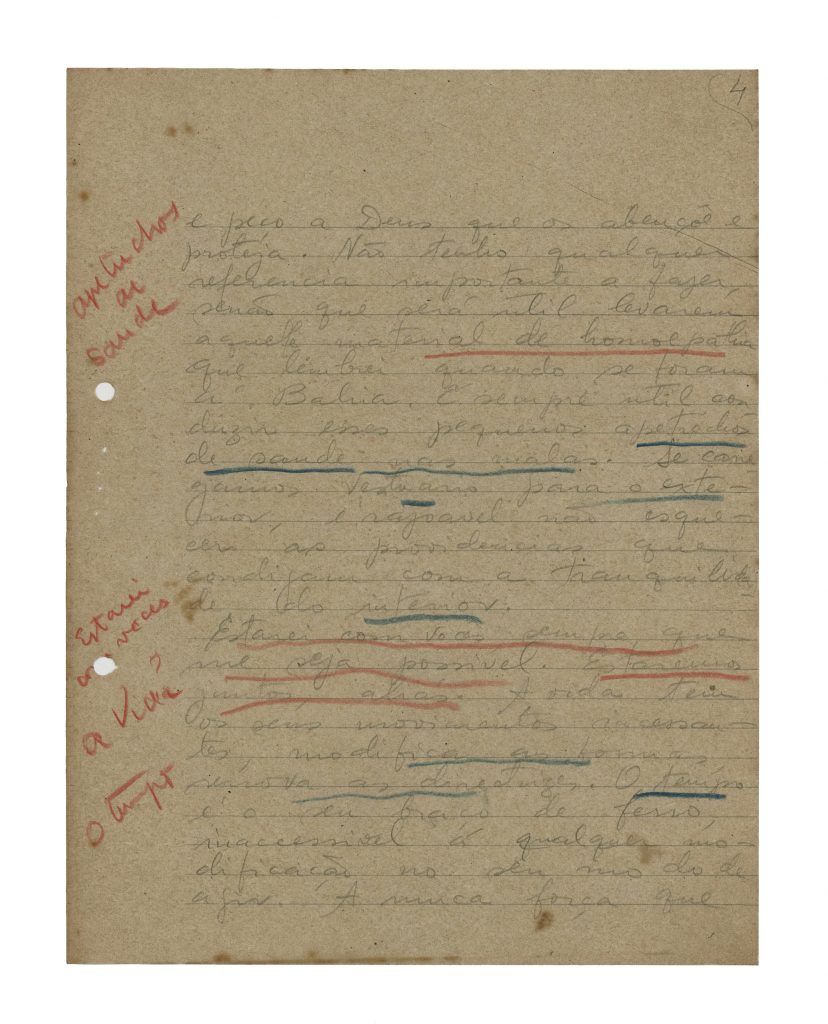 4
e peço a Deus que os abençôe e
proteja. Não tenho qualquer
referencia importante a fazer,
senão que será util levarem
aquelle material de homoepathia
que lembrei quando se foram
á Bahia. É sempre util con-
duzir esses pequenos apetrechos
de saude nas malas. Se carre-
gamos vestuario para o exte-
rior, é razoavel não esque-
cer as providencias que
condigam com a tranquilida-
de do interior.
Estarei com voces sempre que
me seja possivel. Estaremos
juntos, aliás. A vida tem
os seus movimentos incessan-
tes, modifica as formas,
renova as directrizes. O tempo
é o seu braço de ferro,
inaccessivel á qualquer mo-
dificação no seu modo de
agir. A unica força que
apetrechos
de
saude
Estarei
com voces
a Vida
O tempo